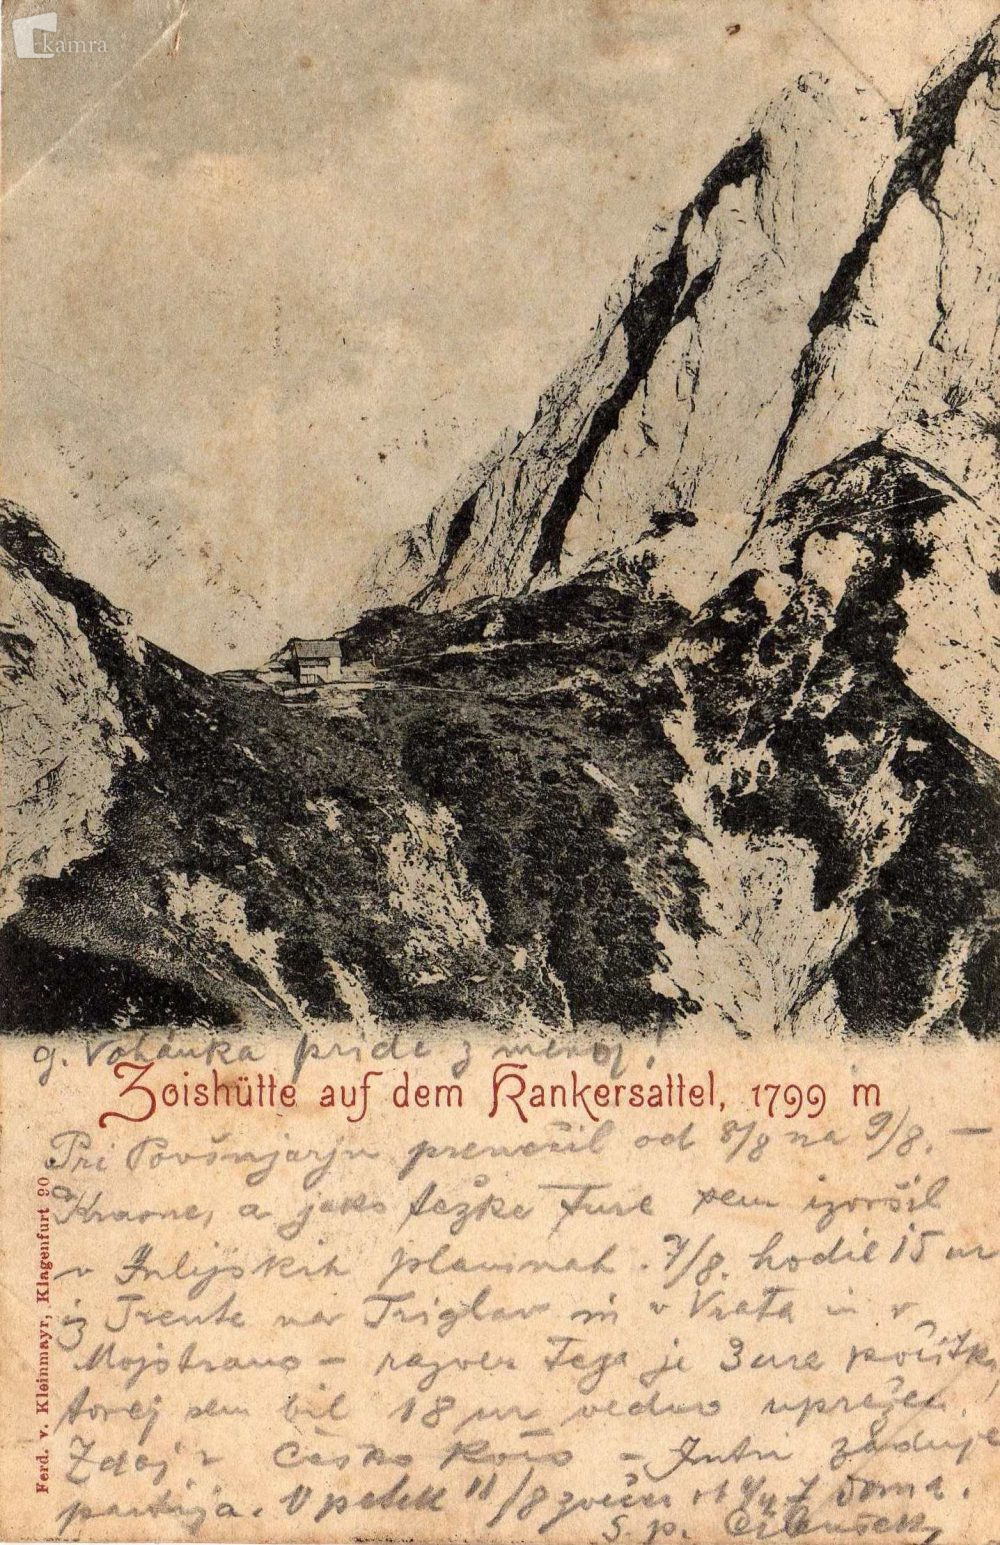 kamra
g. Vohánka pride z menoj!
Zoishütte auf dem Kankersattel, 1799 m
Pri Povšnjarju prenočil od 8/8 na 9/8. —
Kravne, a jako težke Ture sem izvršil
v Julijskih planinah. 7/8. hodil 15 ur
iz Trente na Triglav in v Vrata in v
Mojstrano — razven tega je 3 ure počitka,
torej sem bil 18 ur vedno uprežen.
Zdaj v Češko Kočo — Jutri zadnja
partija. V petek 11/8 zvečer ob 7 doma.
S. p.
Ferd. v. Kleinmayr, Klagenfurt 90